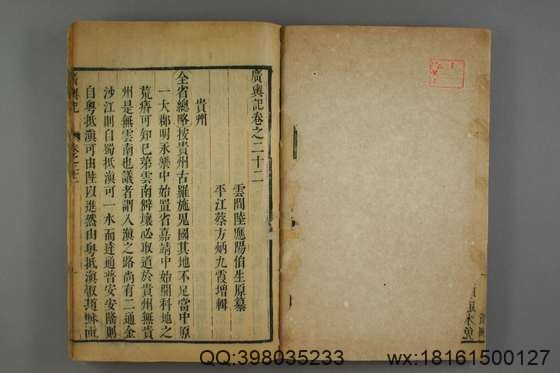 廣輿記卷之二十二
雲間陸應陽伯生原纂
平江蔡方炳九霞增輯
貴州
全省總略按貴州古羅施鬼國其地不足當中原
一大郡明永樂中始置省嘉靖中始開科地之
荒瘠可知已第雲南僻壤必取道於貴州無貴
州是無雲南也議者謂入滇之路尚有二通金
沙江則自蜀抵滇可一水而達通普安安隆則
自粵抵滇可由陸以進然由粵抵滇
廣輿記
QQ:398035233
wx:18161500127